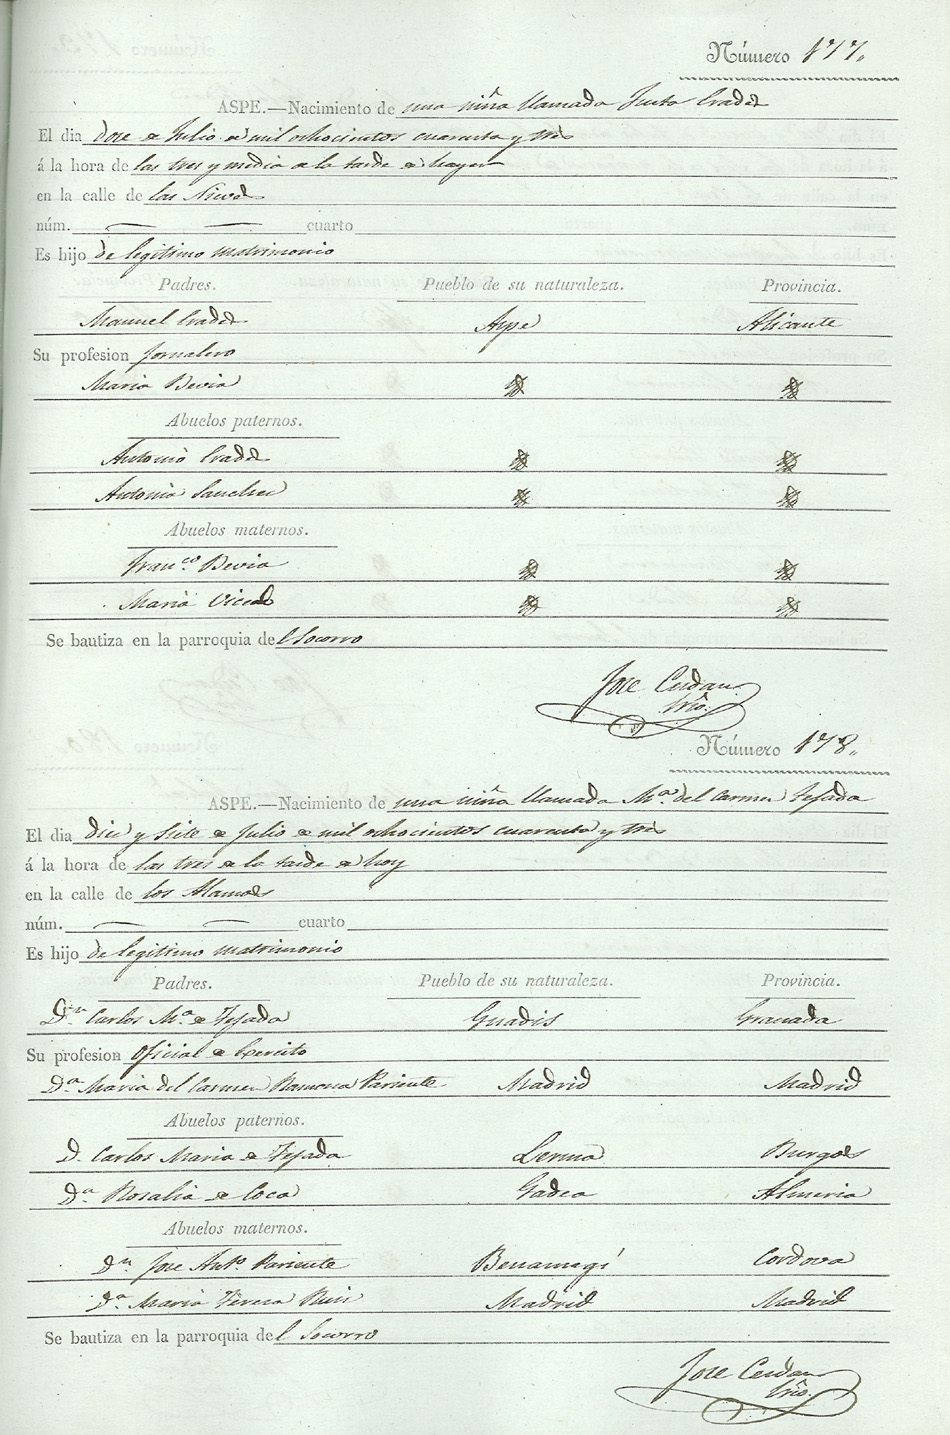 Número 177.
ASPE.—Nacimiento de una niña llamada Justa Cradel
El dia doce de Julio de mil ochocientos cuarenta y tres
á la hora de las tres y media de la tarde de hayer
en la calle de las Nieves
núm. — — cuarto
Es hijo de legitimo matrimonio
Padres. Pueblo de su naturaleza. Provincia.
Manuel Aspe Alicante
Su profesion Jornalero
Maria Bevia
Abuelos paternos.
Antonio
Antonia Sanchez
Abuelos maternos.
Franco. Bevia
Maria Vicedo
Se bautiza en la parroquia del Socorro
Jose Cerdan
Srio.
Número 178.
ASPE.—Nacimiento de una niña llamada Ma. del Carmen Tejada
El dia diez y siete de Julio de mil ochocientos cuarenta y tres
á la hora de las tres de la tarde de hoy
en la calle de los Alamos
núm. — — cuarto
Es hijo de legitimo matrimonio
Padres. Pueblo de su naturaleza. Provincia.
Dn. Carlos Ma. de Tejada Guadis Granada
Su profesion Oficial de Exercito
Da. Maria del Carmen Ramona Pariente Madrid Madrid
Abuelos paternos.
D. Carlos Maria de Tejada Lerma Burgos
Da. Rosalia de Coca Almeria
Abuelos maternos.
Dn. Jose Anto. Pariente Benamegí Cordova
Da. Maria Teresa Madrid Madrid
Se bautiza en la parroquia del Socorro
Jose Cerdan
Srio.